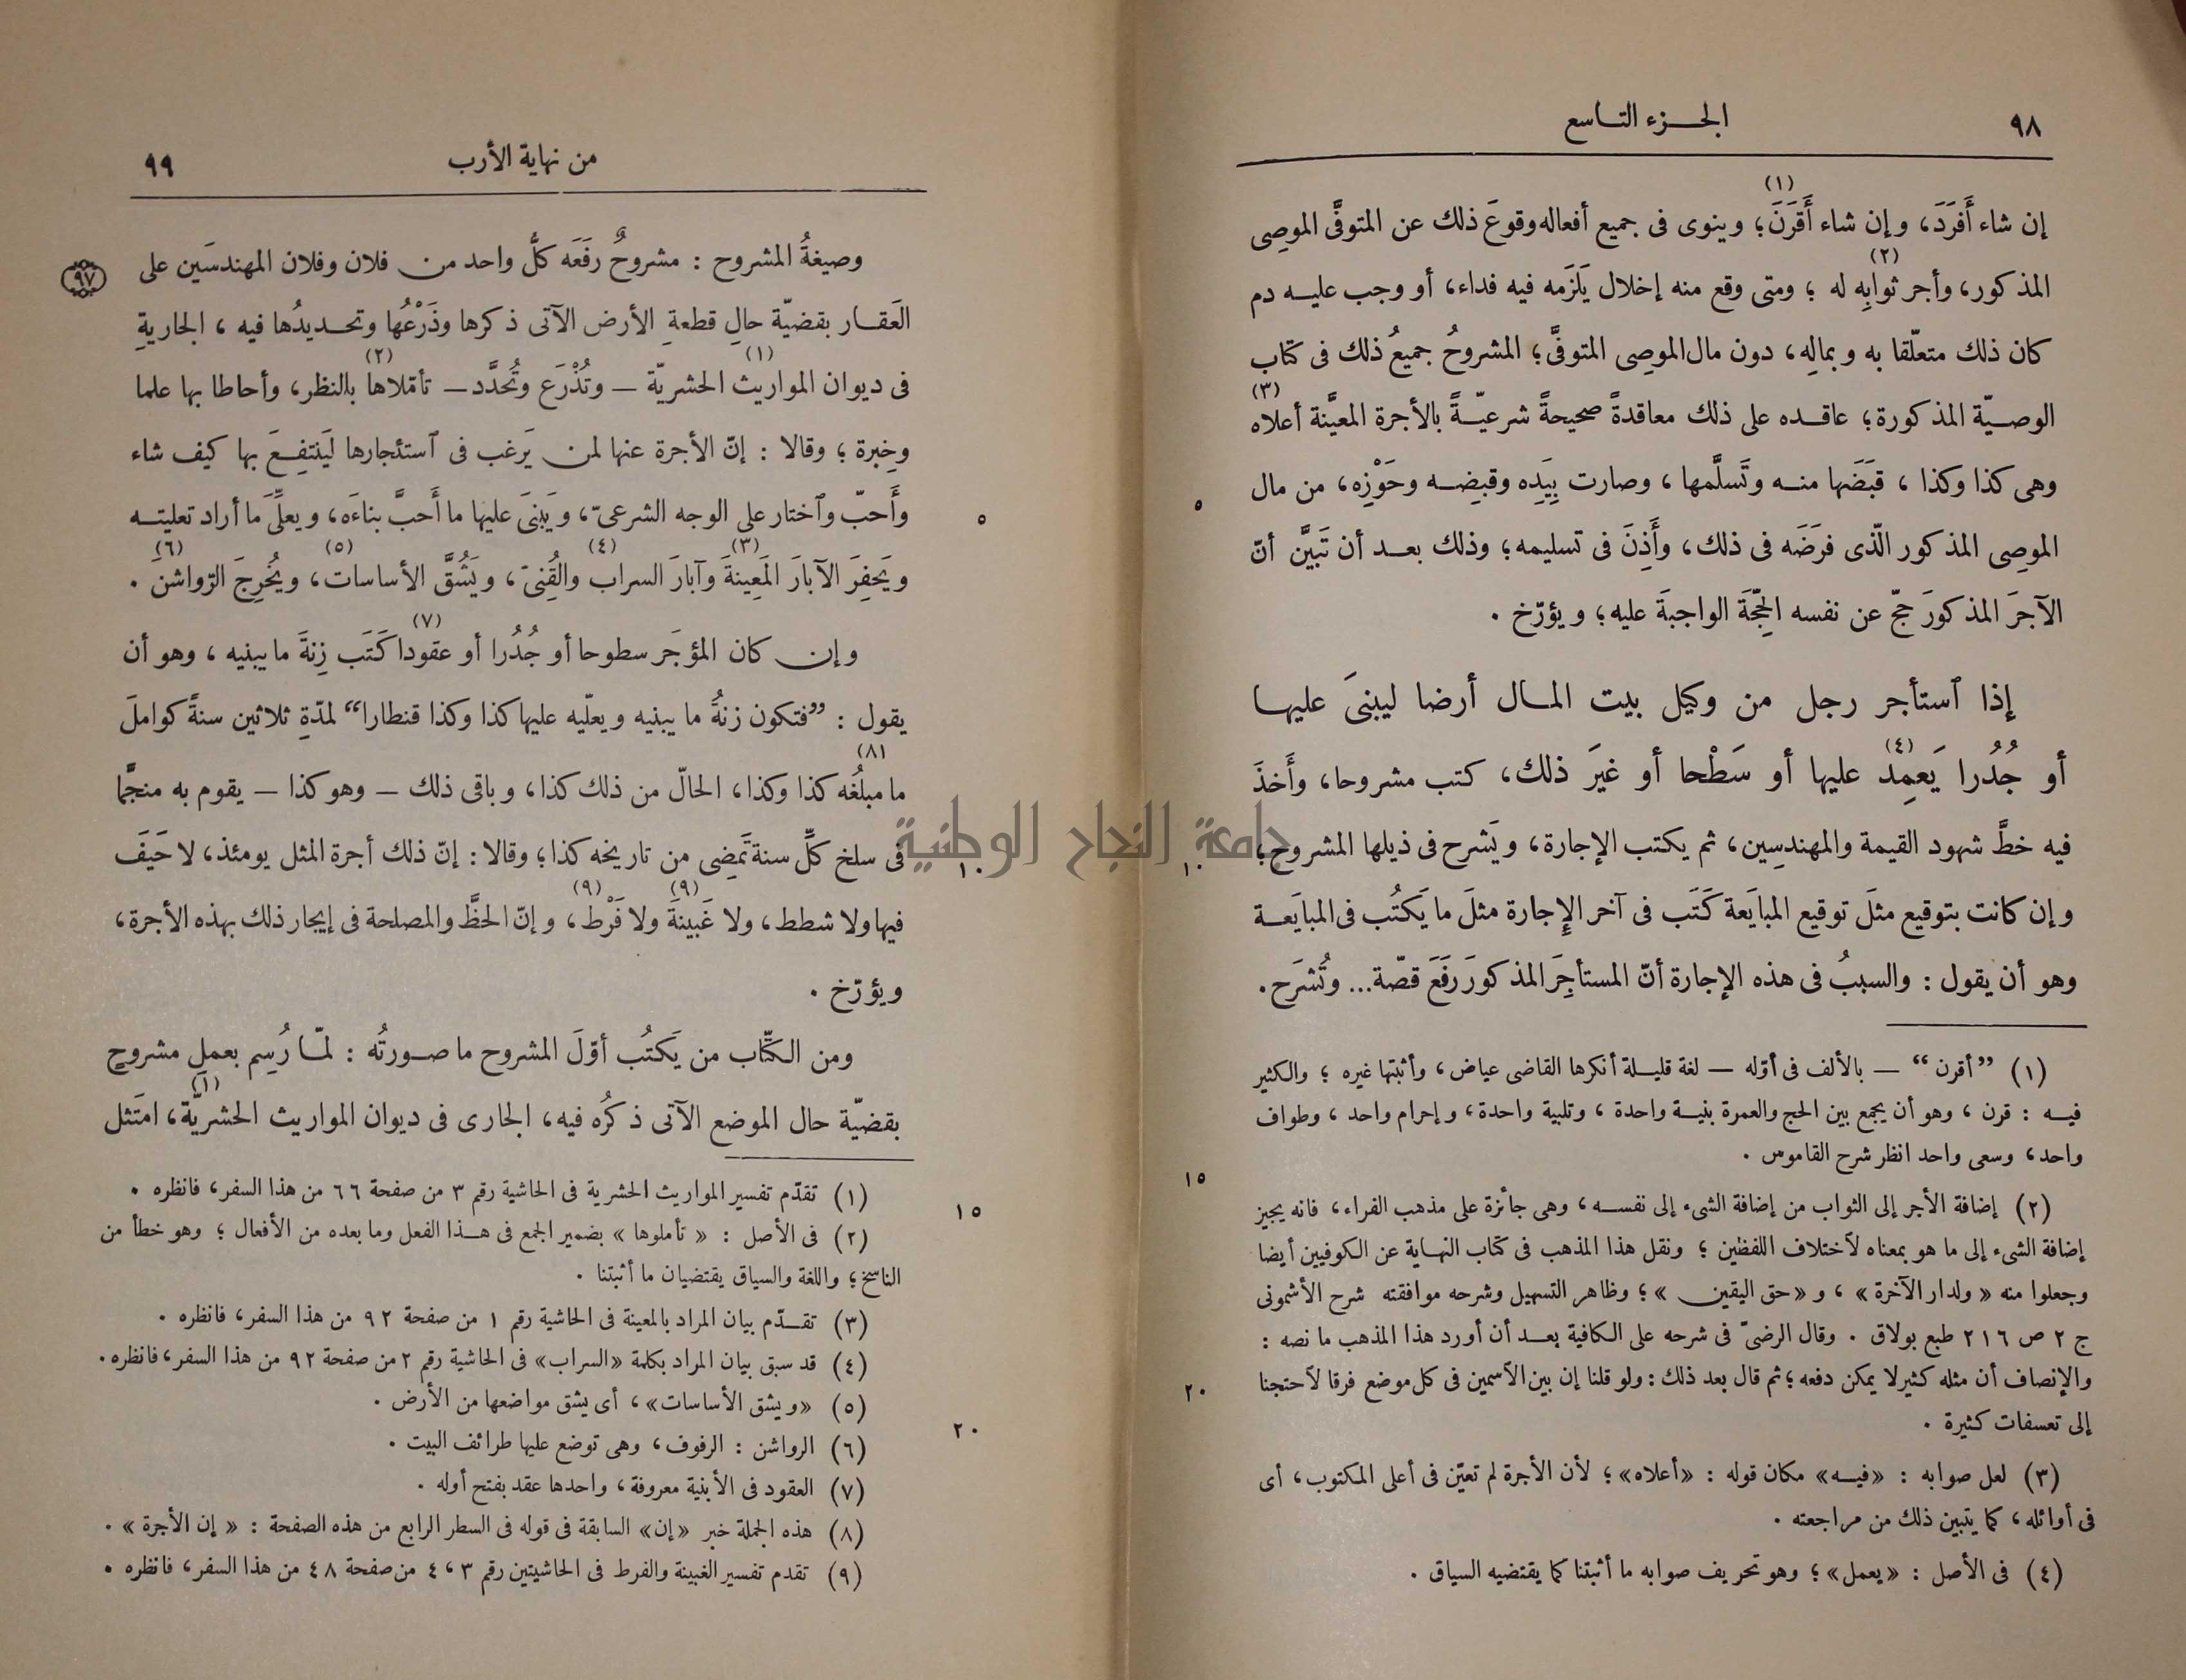 ٩٨
الجزء التاسع
إن شاء أَفرَدَ، وإن شاء أَقرَنَ(١)؛ وينوى فى جميع أفعاله وقوعَ ذلك عن المتوفَّى الموصِى
المذكور، وأجر ثوابِه(٢) له؛ ومتى وقع منه إخلال يَلزَمه فيه فداء، أو وجب عليه دم
كان ذلك متعلّقا به وبمالِه، دون مال الموصِى المتوفَّى؛ المشروحُ جميعُ ذلك فى كتاب
الوصيّة المذكورة؛ عاقده على ذلك معاقدةً صحيحةً شرعيّةً بالأجرة المعيَّنة أعلاه(٣)
وهى كذا وكذا، قَبَضَها منه وتَسلَّمها، وصارت بِيَدِه وقبضِه وحَوْزِه، من مال
٥
الموصِى المذكور الّذى فرَضَه فى ذلك، وأَذِنَ فى تسليمه؛ وذلك بعد أن تَبيَّن أنّ
الآجرَ المذكورَ حجّ عن نفسه الحِجّةَ الواجبةَ عليه؛ ويؤرّخ.
إذا ٱستأجر رجل من وكيل بيت المال أرضا ليبنىَ عليها
أو جُدُرا يَعمِد(٤) عليها أو سَطْحا أو غيرَ ذلك، كتب مشروحا، وأَخذَ
فيه خطَّ شهود القيمة والمهندسِين، ثم يكتب الإجارة، ويَشرح فى ذيلها المشروح؛
١٠
وإن كانت بتوقيع مثلَ توقيع المبايَعة كَتَب فى آخر الإِجارة مثلَ ما يَكتُب فى المبايَعة
وهو أن يقول: والسببُ فى هذه الإجارة أنّ المستأجِرَ المذكورَ رَفَعَ قصّة... وتُشرَح.
(١) ”أقرن“ — بالألف فى أوّله — لغة قليلة أنكرها القاضى عياض، وأثبتها غيره؛ والكثير
فيه: قرن، وهو أن يجمع بين الحج والعمرة بنية واحدة، وتلبية واحدة، وإحرام واحد، وطواف
واحد، وسعى واحد انظر شرح القاموس.
١٥
(٢) إضافة الأجر إلى الثواب من إضافة الشىء إلى نفسه، وهى جائزة على مذهب الفراء، فانه يجيز
إضافة الشىء إلى ما هو بمعناه لٱختلاف اللفظين؛ ونقل هذا المذهب فى كتاب النهاية عن الكوفيين أيضا
وجعلوا منه «ولدار الآخرة»، و«حق اليقين»؛ وظاهر التسهيل وشرحه موافقته شرح الأشمونى
ج ٢ ص ٢١٦ طبع بولاق. وقال الرضىّ فى شرحه على الكافية بعد أن أورد هذا المذهب ما نصه:
والإنصاف أن مثله كثير لا يمكن دفعه؛ ثم قال بعد ذلك: ولو قلنا إن بين الٱسمين فى كل موضع فرقا لٱحتجنا
٢٠
إلى تعسفات كثيرة.
(٣) لعل صوابه: «فيه» مكان قوله: «أعلاه»؛ لأن الأجرة لم تعيّن فى أعلى المكتوب، أى
فى أوائله، كما يتبين ذلك من مراجعته.
(٤) فى الأصل: «يعمل»؛ وهو تحريف صوابه ما أثبتنا كما يقتضيه السياق.
من نهاية الأرب
٩٩
وصيغةُ المشروح: مشروحٌ رفَعَه كلُّ واحد من فلان وفلان المهندسَين على
٩٧
العَقار بقضيّة حالِ قطعةِ الأرض الآتى ذكرها وذَرْعُها وتحديدُها فيه، الجاريةِ
فى ديوان المواريث الحشريّة(١) — وتُذْرَع وتُحدَّد — تأمّلاها(٢) بالنظر، وأحاطا بها علما
وخِبرة؛ وقالا: إنّ الأجرة عنها لمن يَرغب فى ٱستئجارها لَيَنتفِعَ بها كيف شاء
وأَحبّ وٱختار على الوجه الشرعىّ، ويَبنىَ عليها ما أَحبَّ بناءَه، ويعلِّىَ ما أراد تعليته
٥
ويَحفِرَ الآبارَ المَعِينةَ(٣) وآبارَ السراب(٤) والقُنِىّ، ويَشُقَّ الأساسات(٥)، ويُخرِجَ الرّواشنَ(٦).
وإن كان المؤجَر سطوحا أو جُدُرا أو عقودا(٧) كَتَب زِنةَ ما يبنيه، وهو أن
يقول: ”فتكون زنةُ ما يبنيه ويعلّيه عليها كذا وكذا قنطارا“ لمدّةِ ثلاثين سنةً كواملَ
ما مبلغُه(٨) كذا وكذا، الحالّ من ذلك كذا، وباقى ذلك — وهو كذا — يقوم به منجَّما
فى سلخ كلِّ سنة تَمضِى من تاريخه كذا؛ وقالا: إنّ ذلك أجرة المثل يومئذ، لا حَيفَ
١٠
فيها ولا شطط، ولا غَبِينةَ(٩) ولا فَرْط(٩)، وإنّ الحظَّ والمصلحة فى إيجار ذلك بهذه الأجرة،
ويؤرّخ.
ومن الكتّاب من يَكتُب أوّلَ المشروح ما صورتُه: لمّا رُسِم بعملِ مشروحٍ
بقضيّة حال الموضع الآتى ذكرُه فيه، الجارى فى ديوان المواريث الحشريّة(١)، امتَثل
(١) تقدّم تفسير المواريث الحشرية فى الحاشية رقم ٣ من صفحة ٦٦ من هذا السفر، فانظره.
١٥
(٢) فى الأصل: «تأملوها» بضمير الجمع فى هذا الفعل وما بعده من الأفعال؛ وهو خطأ من
الناسخ؛ واللغة والسياق يقتضيان ما أثبتنا.
(٣) تقدّم بيان المراد بالمعينة فى الحاشية رقم ١ من صفحة ٩٢ من هذا السفر، فانظره.
(٤) قد سبق بيان المراد بكلمة «السراب» فى الحاشية رقم ٢ من صفحة ٩٢ من هذا السفر، فانظره.
(٥) «ويشق الأساسات»، أى يشق مواضعها من الأرض.
٢٠
(٦) الرواشن: الرفوف، وهى توضع عليها طرائف البيت.
(٧) العقود فى الأبنية معروفة، واحدها عقد بفتح أوله.
(٨) هذه الجملة خبر «إن» السابقة فى قوله فى السطر الرابع من هذه الصفحة: «إن الأجرة».
(٩) تقدم تفسير الغبينة والفرط فى الحاشيتين رقم ٣، ٤ من صفحة ٤٨ من هذا السفر، فانظره.
جامعة النجاح الوطنية